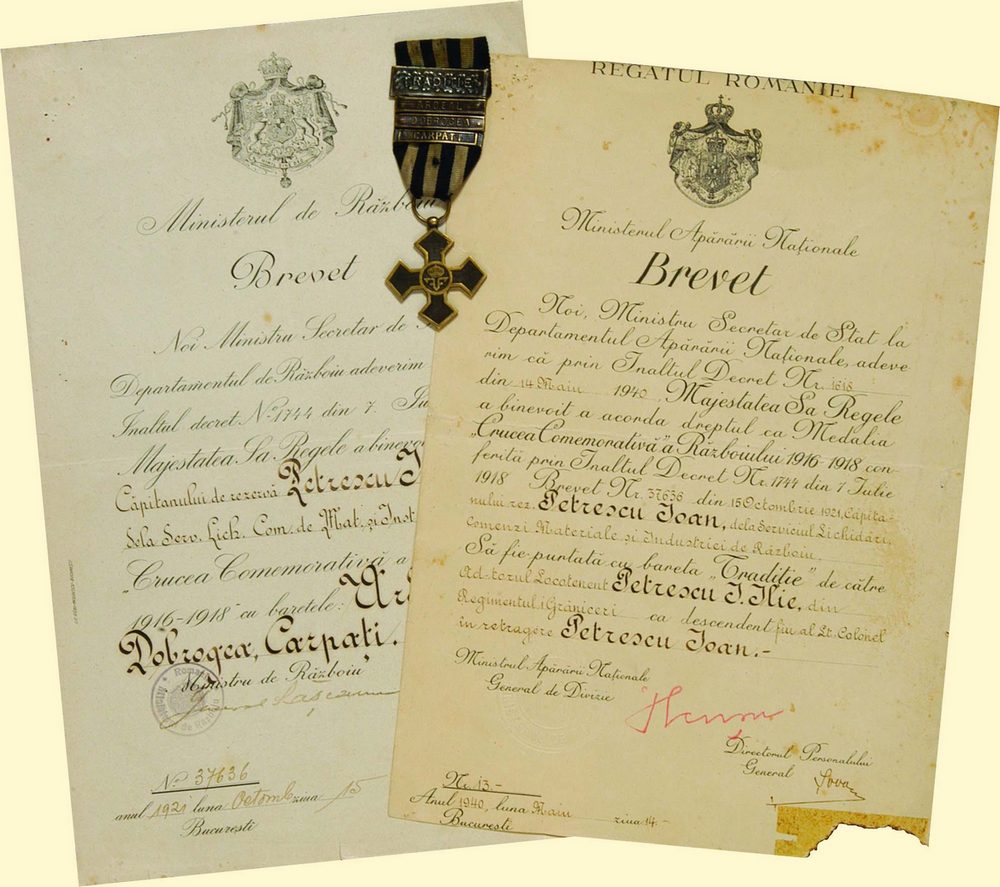 Ministerul de Războiu
Brevet
Noi Ministru Secretar de
Departamentul de Războiu adeverim
Inaltul decret No. 1744 din 7.
Majestatea Sa Regele a binevo
Căpitanului de rezervă Petrescu
dela Serv. Lich. Com. de Mat. și Inst
„Crucea Comemorativă a
1916-1918" cu baretele:
Dobrogea, Carpați.
Ministru de Războiu
No. 37636
anul 1921 luna Octomb ziua 15
București
TRADIȚIE
ARDEAL
DOBROGEA
CARPAȚI
REGATUL ROMANIEI
Ministerul Apărării Naționale
Brevet
Noi, Ministru Secretar de Stat la
Departamentul Apărării Naționale, adeve
rim că prin Inaltul Decret Nr. 1618
din 14 Maiu 1940, Majestatea Sa Regele
a binevoit a acorda dreptul ca Medalia
„Crucea Comemorativă" a Războiului 1916-1918 con-
ferită prin Inaltul Decret Nr. 1744 din 7 Iulie
1918 Brevet Nr. 37636 din 15 Octombre 1921, Căpita-
nului rez. Petrescu Ioan, dela Serviciul Lichidări,
Comenzi Materiale și Industriei de Războiu
Să fie purtată cu bareta „Tradiție" de către
Ad-torul Locotenent Petrescu I. Ilie, din
Regimentul 1 Grăniceri ca descendent fiu al Lt. Colonel
in retragere Petrescu Ioan.-
Ministrul Apărării Naționale
General de Divizie
Directorul Personalului
General
Nr. 13-
Anul 1940, luna Maiu ziua 14-
București